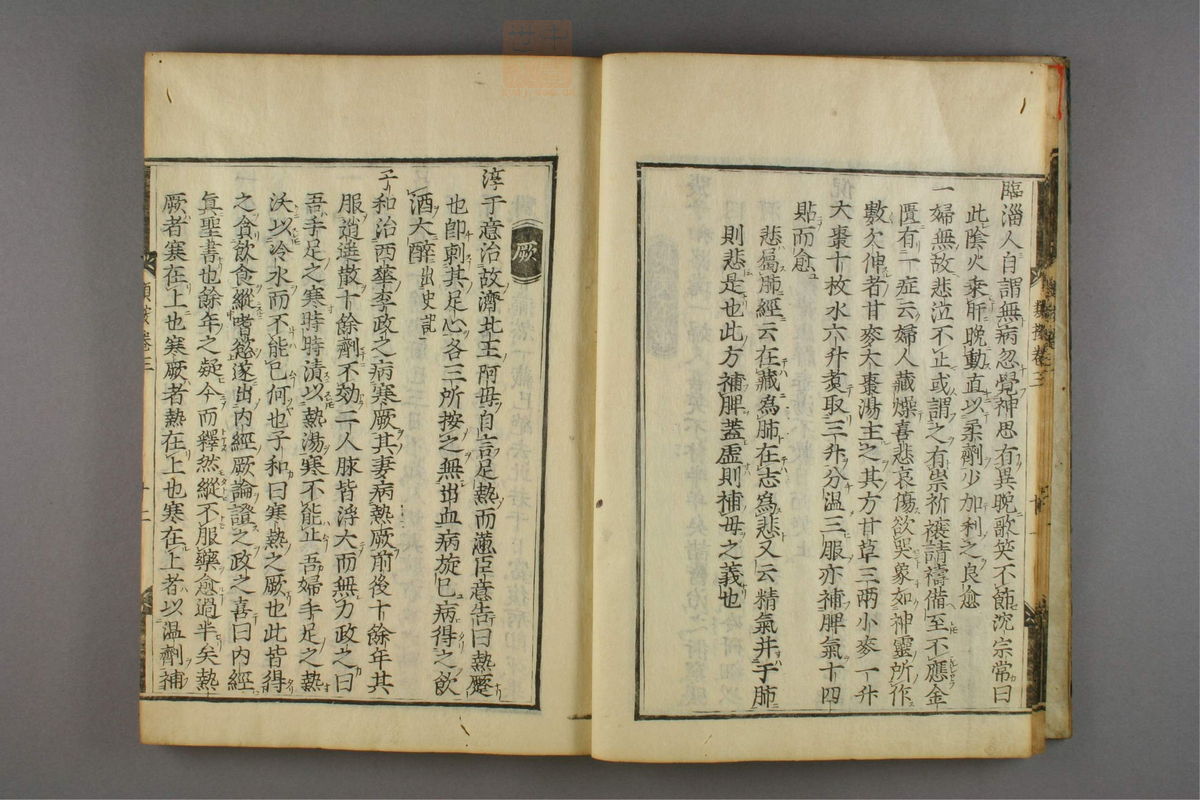 臨淄人自謂無病忽覺神思有異晚歌笑不節沈宗常曰
此陰火乘肺晚動直以柔劑少加利之良愈
一婦無故悲泣不止或謂之有祟祈禳請禱備至不應金
匱有一症云婦人藏燥喜悲哀傷欲哭象如神靈所作
數欠伸者甘麥大棗湯主之其方甘草三兩小麥一升
大棗十枚水六升煮取三升分温三服亦補脾氣十四
貼而愈
悲屬肺經云在藏為肺在志為悲又云精氣并于肺
則悲是也此方補脾蓋虚則補母之義也
厥
淳于意治故濟北王阿母自言足熱而懣臣意告曰熱蹷
也即刺其足心各三所按之無出血病旋已病得之飲
酒大醉出史記
子和治西華李政之病寒厥其妻病熱厥前後十餘年其
服逍遥散十餘劑不効二人脉皆浮大而無力政之曰
吾手足之寒時時漬以熱湯寒不能止吾婦手足之熱
沃以冷水而不能已何也子和曰寒熱之厥也此皆得
之貪飲食縱嗜慾遂出内經厥論證之政之喜曰内經
真聖書也餘年之疑今而釋然縱不服藥愈過半矣熱
厥者寒在上也寒厥者熱在上也寒在上者以温劑補